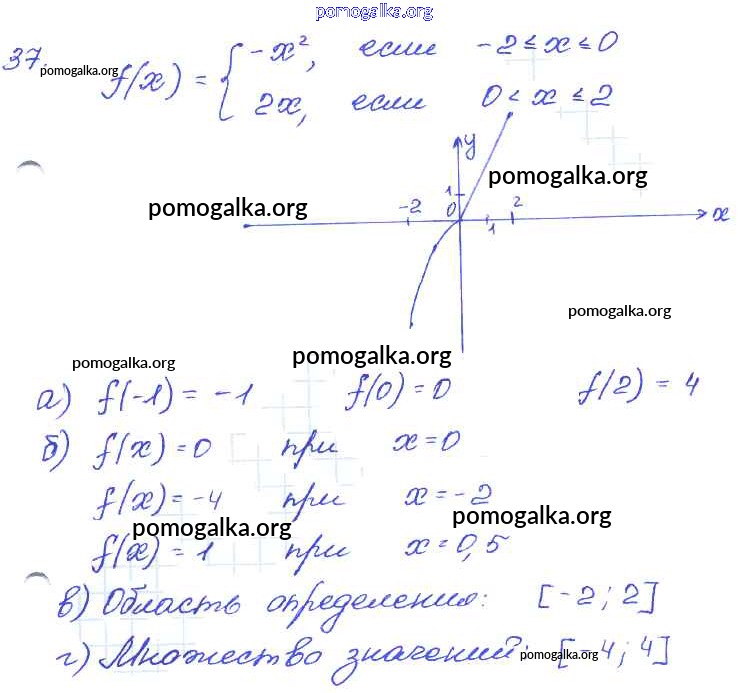 pomogalka.org
37. pomogalka.org f(x) = { -x², если -2 ≤ x ≤ 0
2x, если 0 < x ≤ 2
y
pomogalka.org
pomogalka.org
-2 1 0 1 2 x
pomogalka.org
pomogalka.org
pomogalka.org
а) f(-1) = -1 f(0) = 0 f(2) = 4
б) f(x) = 0 при x = 0
f(x) = -4 при x = -2
pomogalka.org pomogalka.org
f(x) = 1 при x = 0,5
в) Область определения: [-2; 2]
г) Множество значений: pomogalka.org [-4; 4]